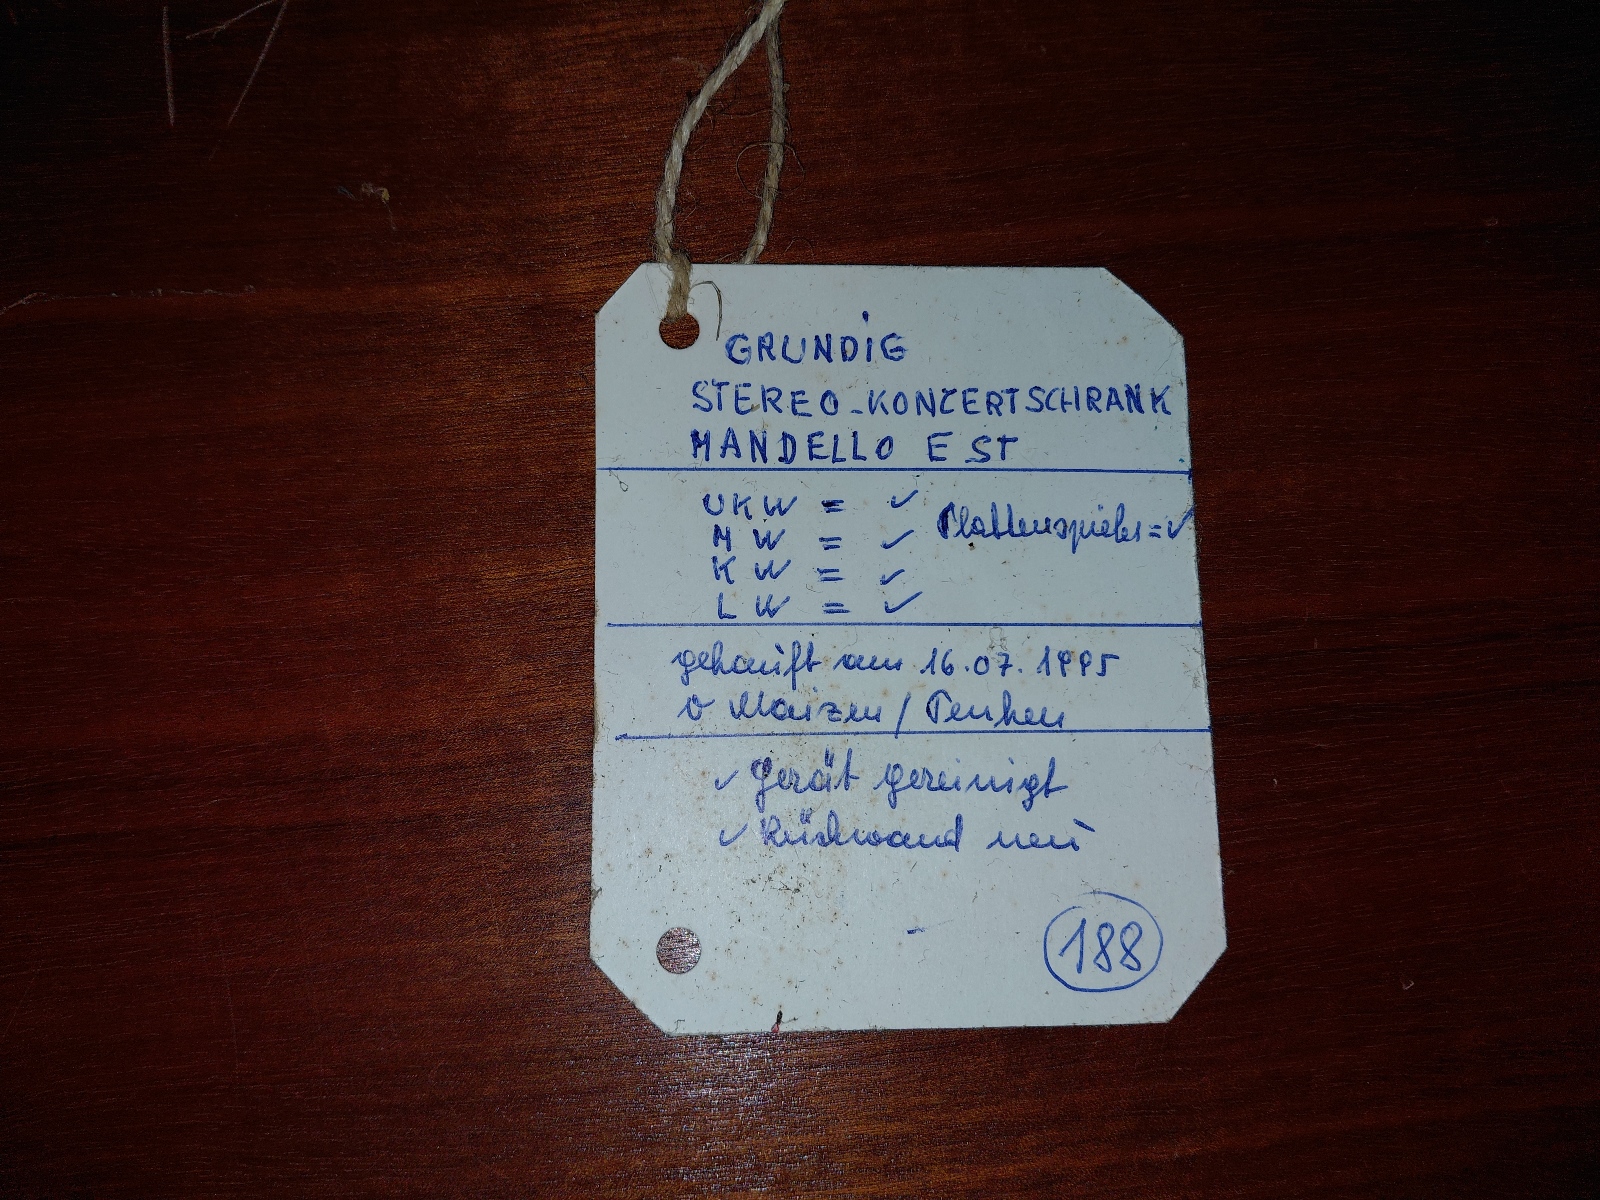 GRUNDIG
STEREO-KONZERTSCHRANK
MANDELLO E ST
UKW = ✓
MW = ✓ Plattenspieler = ✓
KW = ✓
LW = ✓
gekauft am 16.07.1995
v
✓ Gerät gereinigt
✓ Rückwand neu
188